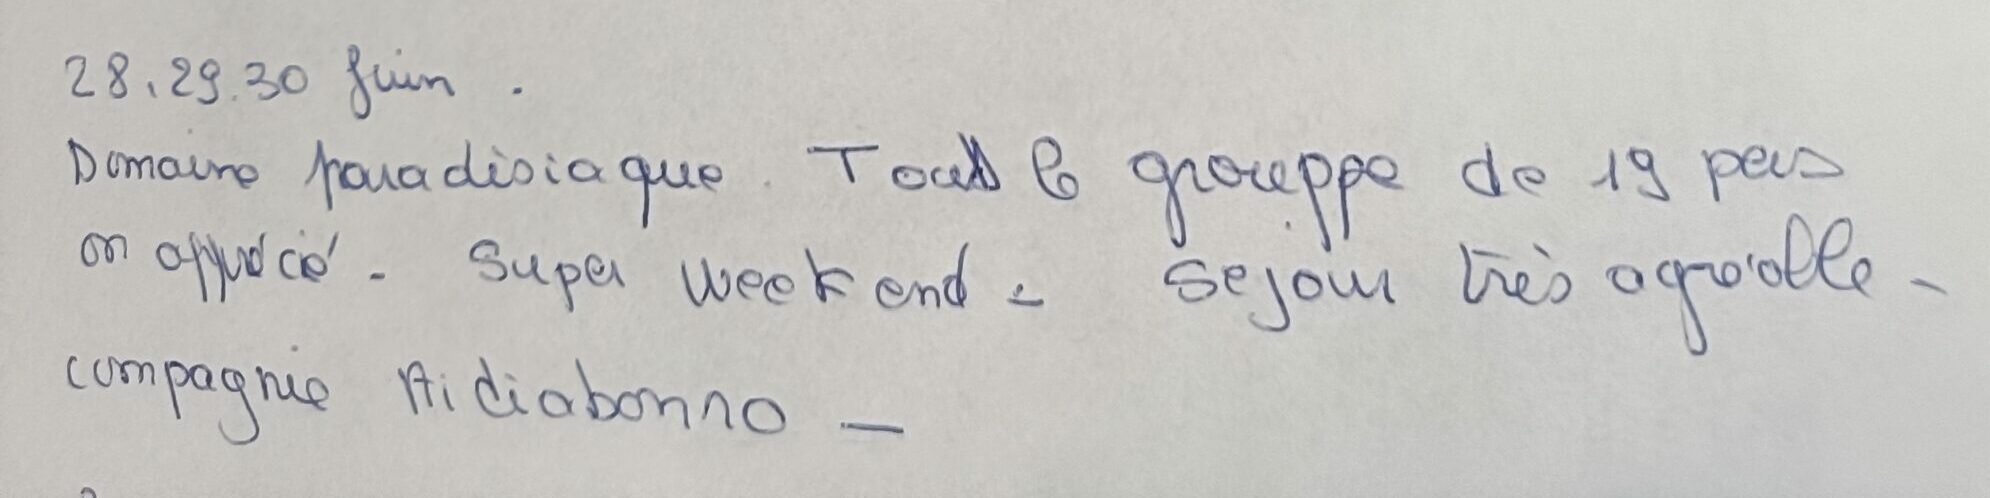 28.29.30 Juin.
Domaine paradisiaque. Tout le grouppe de 19 pers
on apprécié. Super week end - sejour très agréable -
compagnie Aidiabonno -